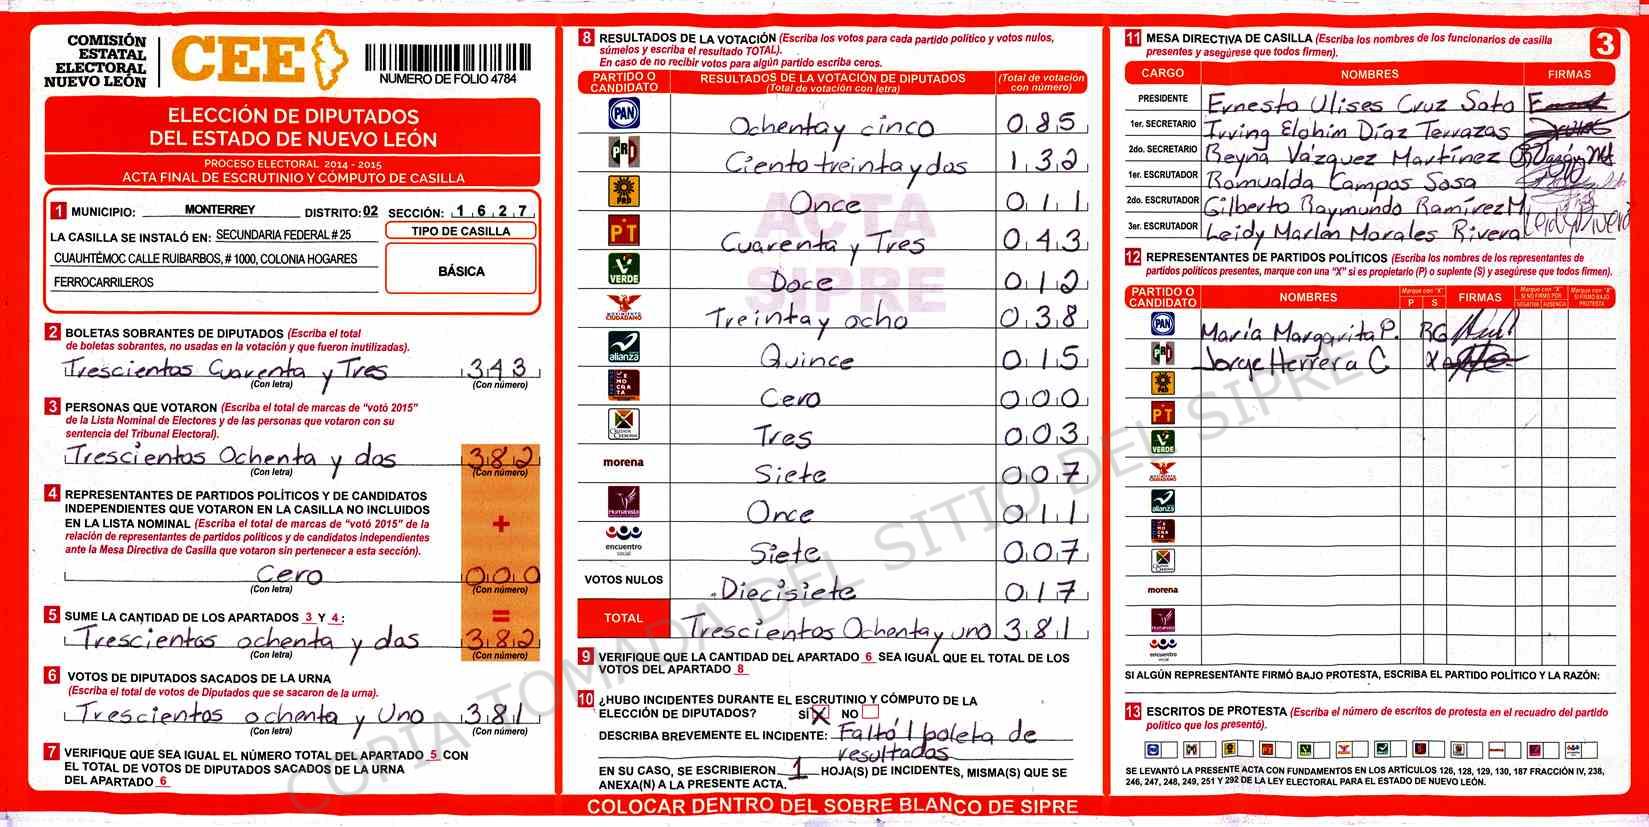 COMISIÓN
ESTATAL
ELECTORAL
NUEVO LEÓN
CEE
NUMERO DE FOLIO 4784
ELECCIÓN DE DIPUTADOS
DEL ESTADO DE NUEVO LEÓN
PROCESO ELECTORAL 2014 - 2015
ACTA FINAL DE ESCRUTINIO Y CÓMPUTO DE CASILLA
1 MUNICIPIO: MONTERREY DISTRITO: 02 SECCIÓN: 1 6 2 7
LA CASILLA SE INSTALÓ EN: SECUNDARIA FEDERAL # 25
CUAUHTÉMOC CALLE RUIBARBOS, # 1000, COLONIA HOGARES
FERROCARRILEROS
TIPO DE CASILLA
BÁSICA
2 BOLETAS SOBRANTES DE DIPUTADOS (Escriba el total
de boletas sobrantes, no usadas en la votación y que fueron inutilizadas).
Trescientos Cuarenta y Tres 343
(Con letra) (Con número)
3 PERSONAS QUE VOTARON (Escriba el total de marcas de "votó 2015"
de la Lista Nominal de Electores y de las personas que votaron con su
sentencia del Tribunal Electoral).
Trescientos Ochenta y dos 382
(Con letra) (Con número)
4 REPRESENTANTES DE PARTIDOS POLÍTICOS Y DE CANDIDATOS
INDEPENDIENTES QUE VOTARON EN LA CASILLA NO INCLUIDOS
EN LA LISTA NOMINAL (Escriba el total de marcas de "votó 2015" de la
relación de representantes de partidos políticos y de candidatos independientes
ante la Mesa Directiva de Casilla que votaron sin pertenecer a esta sección).
+
Cero 000
(Con letra) (Con número)
5 SUME LA CANTIDAD DE LOS APARTADOS 3 Y 4: =
Trescientos ochenta y dos 382
(Con letra) (Con número)
6 VOTOS DE DIPUTADOS SACADOS DE LA URNA
(Escriba el total de votos de Diputados que se sacaron de la urna).
Trescientos ochenta y Uno 381
(Con letra) (Con número)
7 VERIFIQUE QUE SEA IGUAL EL NÚMERO TOTAL DEL APARTADO 5 CON
EL TOTAL DE VOTOS DE DIPUTADOS SACADOS DE LA URNA
DEL APARTADO 6
8 RESULTADOS DE LA VOTACIÓN (Escriba los votos para cada partido político y votos nulos,
súmelos y escriba el resultado TOTAL).
En caso de no recibir votos para algún partido escriba ceros.
PARTIDO O CANDIDATO RESULTADOS DE LA VOTACIÓN DE DIPUTADOS (Total de votación con letra) (Total de votación con número)
PAN Ochenta y cinco 085
PRI Ciento treinta y dos 132
PRD Once 011
PT Cuarenta y Tres 043
VERDE Doce 012
MOVIMIENTO CIUDADANO Treinta y ocho 038
alianza Quince 015
DEMOCRATA Cero 000
CRUZADA CIUDADANA Tres 003
morena Siete 007
Humanista Once 011
encuentro social Siete 007
VOTOS NULOS Diecisiete 017
TOTAL Trescientos Ochenta y uno 381
ACTA
SIPRE
9 VERIFIQUE QUE LA CANTIDAD DEL APARTADO 6 SEA IGUAL QUE EL TOTAL DE LOS
VOTOS DEL APARTADO 8
10 ¿HUBO INCIDENTES DURANTE EL ESCRUTINIO Y CÓMPUTO DE LA
ELECCIÓN DE DIPUTADOS? SÍ X NO
DESCRIBA BREVEMENTE EL INCIDENTE: Faltó 1 boleta de
resultados
EN SU CASO, SE ESCRIBIERON 1 HOJA(S) DE INCIDENTES, MISMA(S) QUE SE
ANEXA(N) A LA PRESENTE ACTA.
COLOCAR DENTRO DEL SOBRE BLANCO DE SIPRE
11 MESA DIRECTIVA DE CASILLA (Escriba los nombres de los funcionarios de casilla
presentes y asegúrese que todos firmen).
3
CARGO NOMBRES FIRMAS
PRESIDENTE Ernesto Ulises Cruz Soto
1er. SECRETARIO Irving Elohim Díaz Terrazas
2do. SECRETARIO Reyna Vázquez Martínez
1er. ESCRUTADOR Romualda Campos Sosa
2do. ESCRUTADOR Gilberto Raymundo Ramírez M
3er. ESCRUTADOR Leidy Marlen Morales Rivera Leidy Rivera
12 REPRESENTANTES DE PARTIDOS POLÍTICOS (Escriba los nombres de los representantes de
partidos políticos presentes, marque con una "X" si es propietario (P) o suplente (S) y asegúrese que todos firmen).
PARTIDO O CANDIDATO NOMBRES Marque con "X" P S FIRMAS Marque con "X" SI NO FIRMÓ POR NEGATIVA AUSENCIA Marque con "X" SI FIRMÓ BAJO PROTESTA
PAN María Margarita P. RG
PRI Jorge Herrera C X
PRD
PT
VERDE
MOVIMIENTO CIUDADANO
alianza
DEMOCRATA
CRUZADA CIUDADANA
morena
Humanista
encuentro social
SI ALGÚN REPRESENTANTE FIRMÓ BAJO PROTESTA, ESCRIBA EL PARTIDO POLÍTICO Y LA RAZÓN:
13 ESCRITOS DE PROTESTA (Escriba el número de escritos de protesta en el recuadro del partido
político que los presentó).
SE LEVANTÓ LA PRESENTE ACTA CON FUNDAMENTOS EN LOS ARTÍCULOS 126, 128, 129, 130, 187 FRACCIÓN IV, 238,
246, 247, 248, 249, 251 Y 292 DE LA LEY ELECTORAL PARA EL ESTADO DE NUEVO LEÓN.
COPIA TOMADA DEL SITIO DEL SIPRE